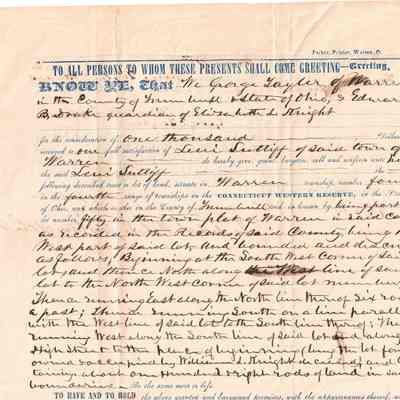 Parker, Printer, Warren, O.
TO ALL PERSONS TO WHOM THESE PRESENTS SHALL COME GREETING—Greeting,
KNOW YE, That We George Tayler of Warren
in the County of Trumbull & State of Ohio, & Edward
B. guardian of Elizabeth L Knight
for the consideration of One thousand Dollars
received to our full satisfaction of Levi Sutliff of said town of
Warren do hereby give, grant, bargain, sell and confirm unto
the said Levi Sutliff
following described tract or lot of land, situate in Warren township, number four
in the fourth range of townships in the CONNECTICUT WESTERN RESERVE, in the State of
Ohio, and which is also in the County of Trumbull and is known by being part
lot number fifty in the town plat of Warren in said Co
as recorded in the Records of said County, being the
West part of said lot, and bounded and
as follows, Beginning at the South West Corner of said
lot and thence North along the West line of said
lot to the North West Corner of said lot
Thence running East along the North line thereof Six rods
& past; Thence running South on a line parallel
with the West line of said lot to the South line thereof; Thence
running West along the South line of said lot and along
High Street to the place of beginning (being the lot for
owned & occupied by William L Knight deceased) and
taining about One Hundred & eight rods of land in said
boundaries be the same more or less.
TO HAVE AND TO HOLD the above granted and bargained premises, with the appurtenances thereof